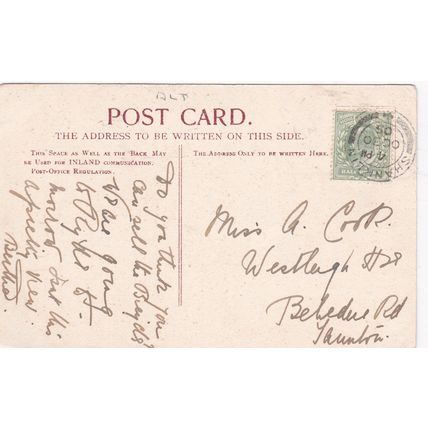 ALT
POST CARD.
THE ADDRESS TO BE WRITTEN ON THIS SIDE.
THIS SPACE AS WELL AS THE BACK MAY
BE USED FOR INLAND COMMUNICATION.
POST-OFFICE REGULATION.
THE ADDRESS ONLY TO BE WRITTEN HERE.
Do you think you
can sell the Bicycle
We are going
to Ryde H.
this
view
Bertha.
Miss A. Cook.
Westleigh Hse
Belvedere Rd
Taunton.
SHAN
4 PM
OC
05
HALF